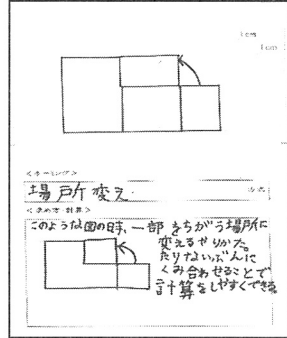 1cm
1cm
<ネーミング>
場所変え
方式
<求め方・計算>
このような図の時、一部をちがう場所に
変えるやりかた。
たりないぶんに
くみ合わせることで
計算をしやすくできる